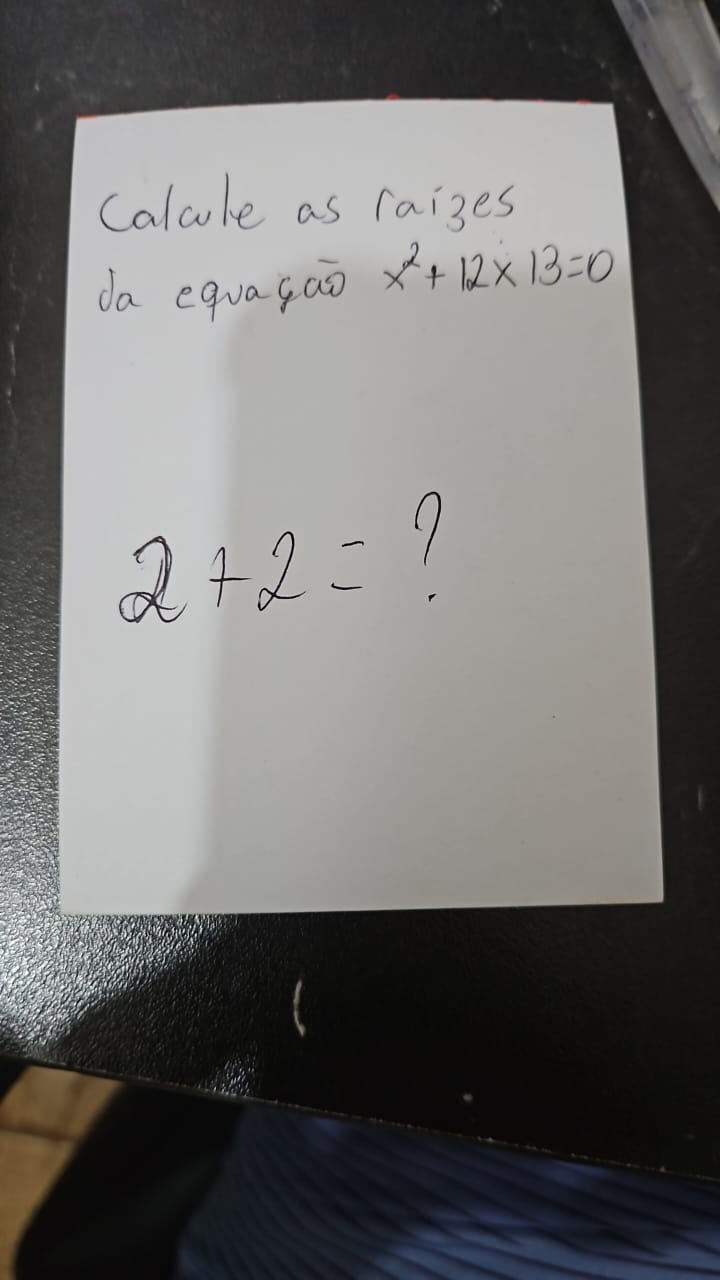 Calcule as raízes
da equação x²+12x 13=0
2+2=?